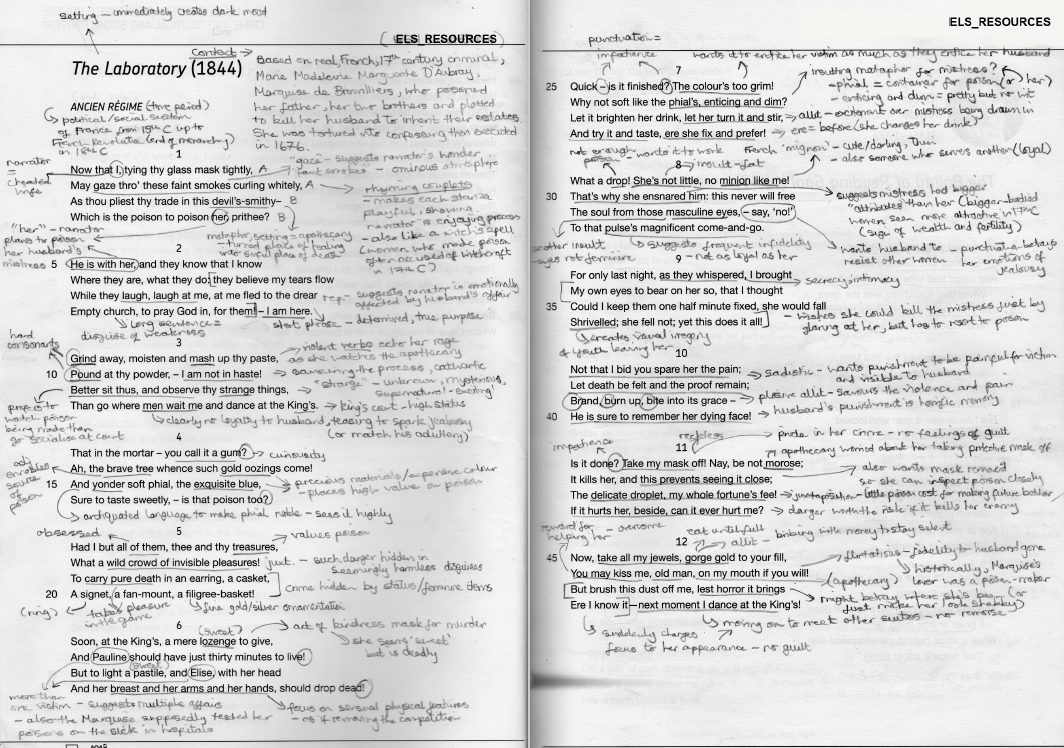 setting – immediately creates dark mood
IELS_RESOURCES
The Laboratory (1844)
Context →
Based on real, French, 17th century criminal,
Marie Madeleine Marguerite D'Aubray,
Marquise de Brinvilliers, who poisoned
her father, her two brothers and plotted
to kill her husband to inherit their estates.
She was tortured into confessing then executed
in 1676.
ANCIEN RÉGIME (time period)
↳ political/social system
of France from 15th C up to
French Revolution (end of monarchy)
in 18th C
narrator
=
cheated
wife
1
Now that I, tying thy glass mask tightly, A
May gaze thro' these faint smokes curling whitely, A
As thou pliest thy trade in this devil's-smithy– B
Which is the poison to poison her, prithee? B
"gaze" – suggests narrator's wonder
"faint smokes" – ominous atmosphere
rhyming couplets
– makes each stanza
playful, showing
narrator is enjoying process
– also like a witch's spell
(women who made poison
often accused of witchcraft
in 17th C)
"her" – narrator
plans to poison
her husband's
mistress
metaphor, setting = apothecary
– turned place of healing
into sinful place of death
2
5 He is with her, and they know that I know
Where they are, what they do: they believe my tears flow
While they laugh, laugh at me, at me fled to the drear
Empty church, to pray God in, for them! – I am here.
rep – suggests narrator is emotionally
affected by husband's affair
↳ long sentence =
disguise of weakness
short phrase – determined, true purpose
hard
consonants
3
Grind away, moisten and mash up thy paste,
10 Pound at thy powder, – I am not in haste!
Better sit thus, and observe thy strange things,
Than go where men wait me and dance at the King's.
violent verbs echo her rage
as she watches the apothecary
→ savouring the process, cathartic
→ "strange" – unknown, mysterious,
supernatural – exciting
→ King's court – high status
prefers to
watch poison
being made than
go socialise at court
↳ clearly no loyalty to husband, teasing to spark jealousy
(or match his adultery)
4
That in the mortar – you call it a gum? → curiosity
Ah, the brave tree whence such gold oozings come!
15 And yonder soft phial, the exquisite blue,
Sure to taste sweetly, – is that poison too?
adj
ennobles
source
of
poison
precious materials/expensive colour
– places high value on poison
↳ archaic language to make phial noble – sees it highly
obsessed
5
→ values poison
Had I but all of them, thee and thy treasures,
What a wild crowd of invisible pleasures!
To carry pure death in an earring, a casket,
20 A signet, a fan-mount, a filigree-basket!
juxt. – such danger hidden in
seemingly harmless disguises
crime hidden by status/feminine items
(ring)
↳ takes pleasure
in the game
↳ fine gold/silver ornamentation
6
(sweet)
→ act of kindness mask for murder
Soon, at the King's, a mere lozenge to give,
And Pauline should have just thirty minutes to live!
(sweet)
But to light a pastile, and Elise, with her head
And her breast and her arms and her hands, should drop dead!
↳ she seems 'sweet'
but is deadly
more than
one victim – suggests multiple affairs
– also the Marquise supposedly tested her
poisons on the sick in hospitals
→ focus on sensual physical features
– as if removing the competition
IELS_RESOURCES
punctuation =
impatience
wants it to entice her victim as much as they entice her husband
7
25 Quick – is it finished? The colour's too grim!
Why not soft like the phial's, enticing and dim?
Let it brighten her drink, let her turn it and stir,
And try it and taste, ere she fix and prefer!
insulting metaphor for mistress?
– phial = container for poison (or her)
– enticing and dim = pretty but no wit
→ allit – excitement over mistress being drawn in
→ ere = before (she changes her drink)
not enough
poison – wants it to work
French 'mignon' – cute/darling, thin
– also someone who serves another (loyal)
8 → insult – fat
What a drop! She's not little, no minion like me!
30 That's why she ensnared him: this never will free
The soul from those masculine eyes, – say, 'no!'
To that pulse's magnificent come-and-go.
suggests mistress had bigger
'attributes' than her (bigger-bodied
women seen more attractive in 17thC
(sign of wealth and fertility)
another insult
– eyes not feminine
↳ suggests frequent infidelity
– not as loyal as her
wants husband to
resist other women
– punctuation betrays
her emotions of
jealousy
9
For only last night, as they whispered, I brought
My own eyes to bear on her so, that I thought
35 Could I keep them one half minute fixed, she would fall
Shrivelled; she fell not; yet this does it all!
→ secrecy, intimacy
→ wishes she could kill the mistress just by
glaring at her, but has to resort to poison
↳ creates visual imagery
of youth leaving her
10
Not that I bid you spare her the pain;
Let death be felt and the proof remain;
Brand, burn up, bite into its grace –
40 He is sure to remember her dying face!
→ sadistic – wants punishment to be painful for victim
and visible to husband
→ plosive allit – savours the violence and pain
→ husband's punishment is horrific memory
impatience
reckless
11
→ pride in her crime – no feelings of guilt
apothecary worried about her taking protective mask off
Is it done? Take my mask off! Nay, be not morose;
It kills her, and this prevents seeing it close;
The delicate droplet, my whole fortune's fee!
If it hurts her, beside, can it ever hurt me?
also wants mask removed
so she can inspect poison closely
→ juxtaposition – little poison cost for making future better
→ danger worth the risk if it kills her enemy
reward for
helping her
– overcome
eat until full
12
→ allit – bribing with money to stay select
45 Now, take all my jewels, gorge gold to your fill,
You may kiss me, old man, on my mouth if you will!
But brush this dust off me, lest horror it brings
Ere I know it – next moment I dance at the King's!
→ flirtatious – fidelity to husband gone
↳ historically, Marquise's
lover was a poison-maker
(apothecary)
might betray where she's been (or
just make her look shabby)
↳ suddenly changes
focus to her appearance – no guilt
↳ moving on to meet other suitors – no remorse